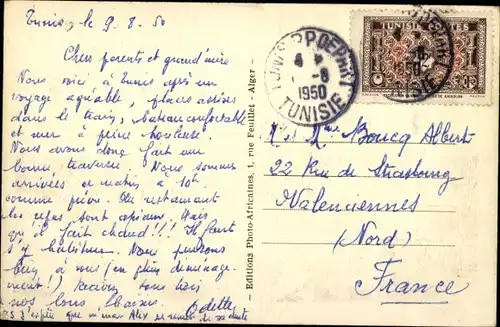 Tunis, le 9.8.50
Chers parents et grand'mère
Nous voici à Tunis après un
voyage agréable, places assises
dans le train, bateau confortable
et mer à peine houleuse.
Nous avons donc fait une
bonne traversée. Nous sommes
arrivés ce matin à 10h
comme prévu. Au restaurant
les repas sont copieux. Mais
qu'il fait chaud!!! Il faut
s'y habituer. Nous pensons
bien à mes (en plein déménage-
ment!) Recevez tous trois
nos bons baisers
Odette
P.S. J'espère que m'man Alix se remet de sa chute
- Editions Photo-Africaines, 1, rue Feuillet - Alger -
TUNIS R.P DEPART
4 *
-8
1950
TUNISIE
TUNISIE
POSTES
M. Mme Boucq Albert
22 Rue de Strasbourg
Valenciennes
(Nord)
France